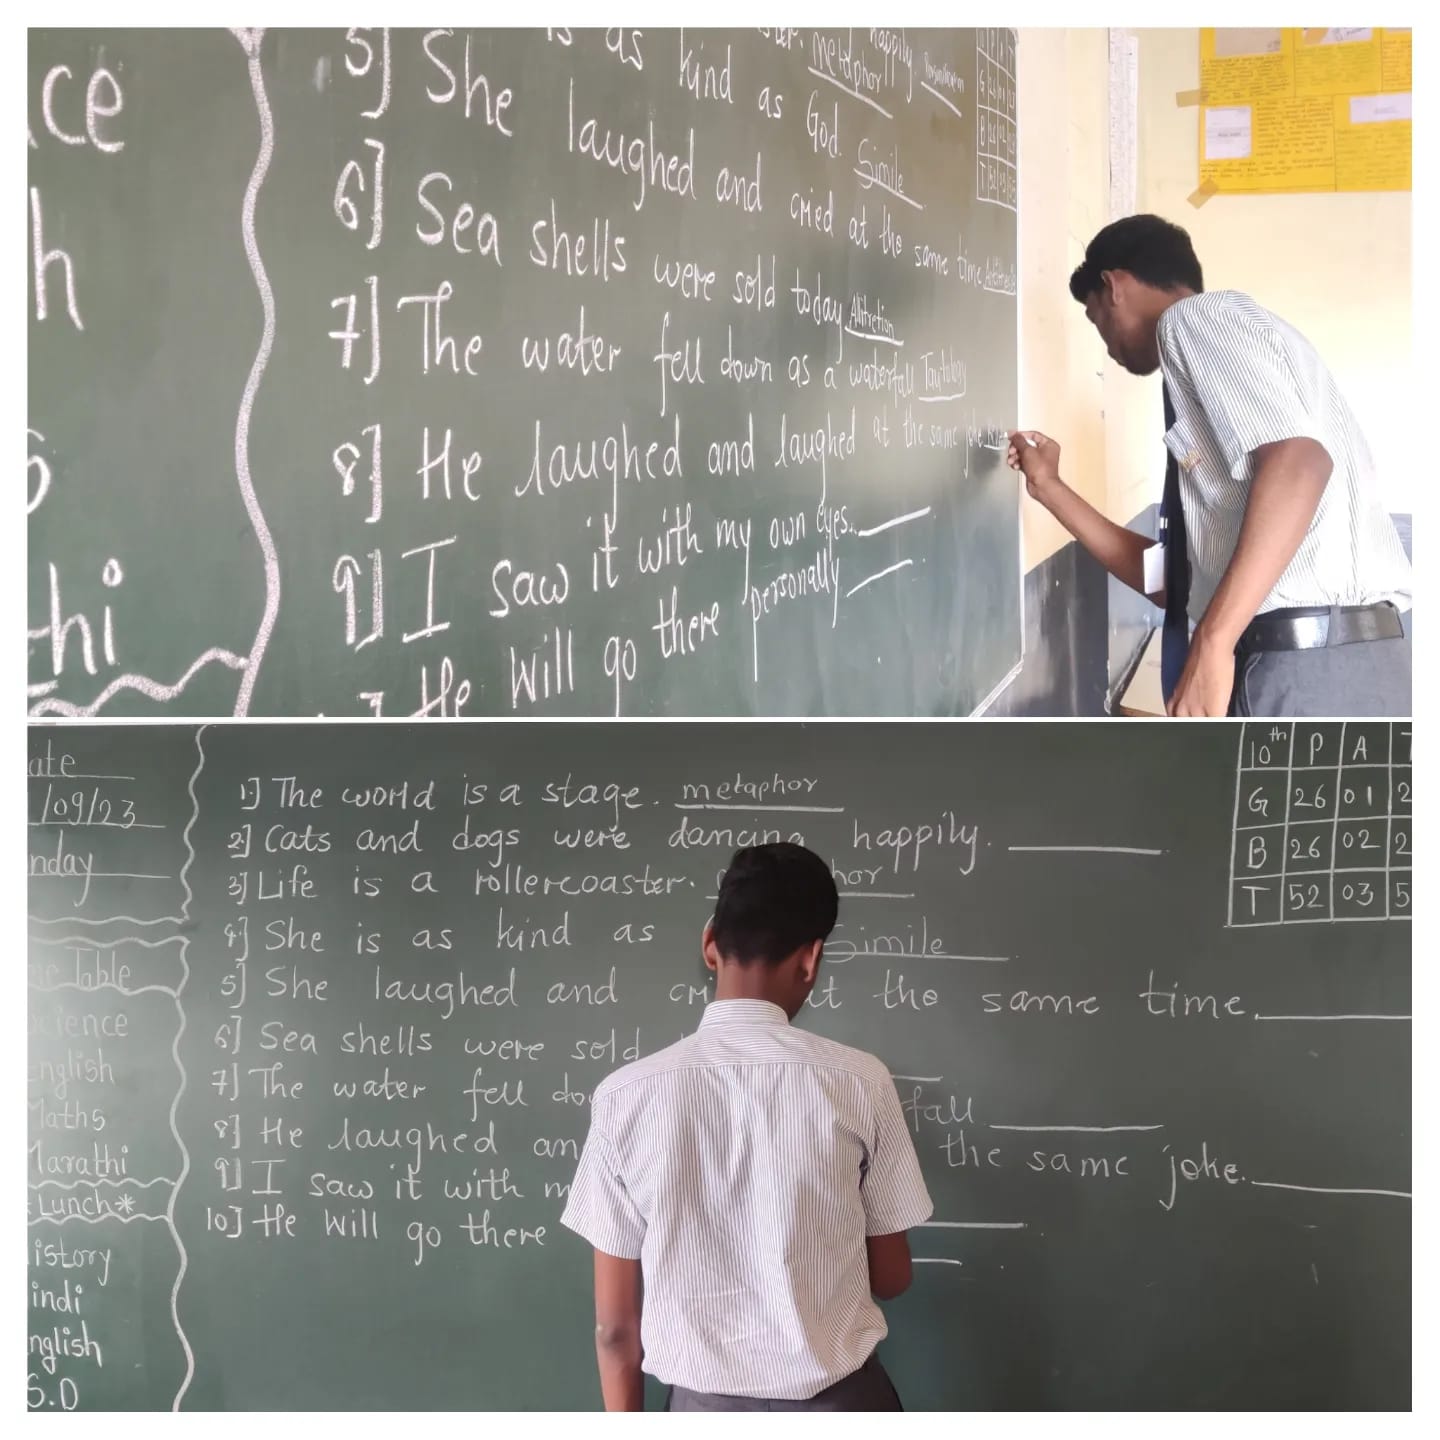 ce
h
hi
is as kind as God. Simile
metaphor
happily. Personification
5] She laughed and cried at the same time Antithesis
6] Sea shells were sold today Alitretion
7] The water fell down as a waterfall Tautology
8] He laughed and laughed at the same joke
9] I saw it with my own eyes.
He will go there personally
ate
/09/23
nday
Table
cience
English
Maths
Marathi
Lunch*
istory
indi
nglish
S.D
1] The world is a stage. metaphor
2] Cats and dogs were dancing happily.
3] Life is a rollercoaster. hor
4] She is as kind as Simile
5] She laughed and cri at the same time.
6] Sea shells were sold
7] The water fell do fall
8] He laughed an the same joke.
9] I saw it with m
10] He will go there
10th P A T
G 26 01 2
B 26 02 2
T 52 03 5